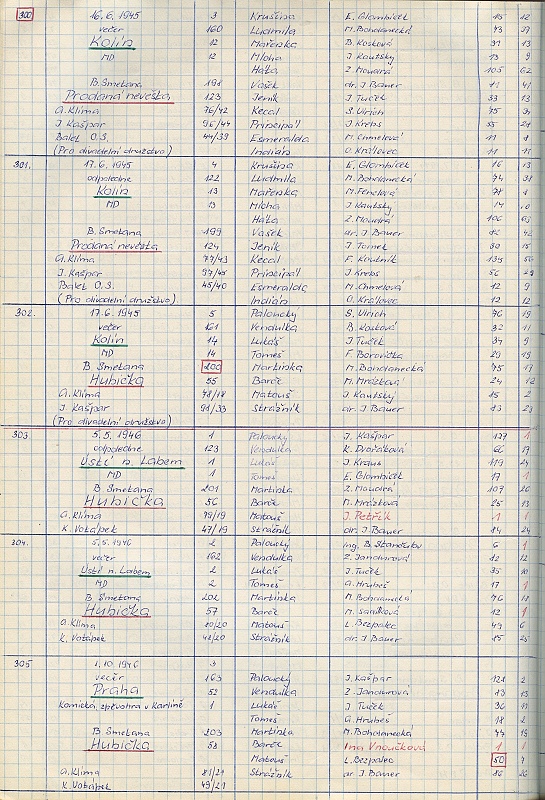 300 16. 6. 1945 3 Krušina E. Glombíček 15 12
večer 160 Ludmila M. Bohdanecká 73
Kolín 12 Mařenka B. Kosková 31 13
MD 12 Mícha J. Kautský 13 9
Háta Z. Moudrá 105 62
B. Smetana 198 Vašek dr. J. Bauer 41
Prodaná nevěsta 123 Jeník J. Tuček 33 13
A. Klíma 76/42 Kecal S. Ulrich 75
J. Kašpar 96/44 Principál J. Krebs 55
Balet O.S. 44/39 Esmeralda M. Chmelová 11
(Pro divadelní družstvo) Indián O. Královec 11 11
301. 17. 6. 1945 4 Krušina E. Glombíček 16 13
odpoledne 122 Ludmila M. Bohdanecká 74
Kolín 13 Mařenka M. Fenclová 78 1
MD 13 Mícha J. Kautský 14 10
Háta Z. Moudrá 106 63
B. Smetana 199 Vašek dr. J. Bauer 42
Prodaná nevěsta 124 Jeník J. Tomek 30 15
A. Klíma 77/43 Kecal F. Koutník 135 56
J. Kašpar 97/45 Principál J. Krebs 56
Balet O.S. 45/40 Esmeralda M. Chmelová 12 9
(Pro divadelní družstvo) Indián O. Královec 12 12
302. 17. 6. 1945 5 Paloucký S. Ulrich 76 19
večer 161 Vendulka B. Kosková 32 11
Kolín 14 Lukáš J. Tuček 34 9
MD 14 Tomeš F. Borovička 20 19
B. Smetana 200 Martinka M. Bohdanecká 75 17
Hubička 55 Barče M. Mrázková 24 12
A. Klíma 78/18 Matouš J. Kautský 15 2
J. Kašpar 98/33 Strážník dr. J. Bauer 13 23
(Pro divadelní družstvo)
303 5. 5. 1946 1 Paloucký J. Kašpar 127 1
odpoledne 123 Vendulka K. Dvořáková 66 17
Ústí n. Labem 1 Lukáš J. Kraus 119 24
MD 1 Tomeš E. Glombíček 17 1
B. Smetana 201 Martinka Z. Moudrá 107 26
Hubička 56 Barče M. Mrázková 25 13
A. Klíma 79/19 Matouš J. Petřík 1 1
K. Votápek 47/19 Strážník dr. J. Bauer 14 24
304. 5. 5. 1946 2 Paloucký ing. B. Stančubr 6 1
večer 162 Vendulka Z. Jandurová 12 12
Ústí n. Labem 2 Lukáš J. Tuček 35 10
MD 2 Tomeš A. Hrubeš 17 1
B. Smetana 202 Martinka M. Bohdanecká 76 18
Hubička 57 Barče M. Sadková 12 1
A. Klíma 80/20 Matouš L. Bezpalec 49 6
K. Votápek 48/20 Strážník dr. J. Bauer 15 25
305 1. 10. 1946 3
večer 163 Paloucký J. Kašpar 128 2
Praha 52 Vendulka Z. Jandurová 13 13
Komická zpěvohra v Karlíně 1 Lukáš J. Tuček 36 11
Tomeš A. Hrubeš 18 2
B. Smetana 203 Martinka M. Bohdanecká 77 19
Hubička 58 Barče Ina Vnoučková 1 1
Matouš L. Bezpalec 50 7
A. Klíma 81/21 Strážník dr. J. Bauer 16 26
K. Votápek 49/21